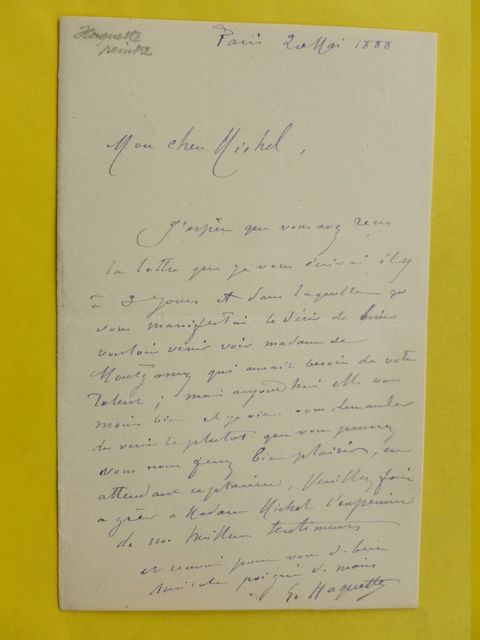 Haquette
peintre
Paris 20 Mai 1888
Mon cher Michel,
J'espère que vous avez reçu
la lettre que je vous écrivai il y
à 2 jours et dans laquelle je
vous manifestai le désir de bien
vouloir venir voir madame de
Montgomery qui aurait besoin de votre
talent; mais aujourd'hui elle va
moins bien et je viens vous demander
de venir le plutot que vous pourrez
vous nous ferez bien plaisir, en
attendant ce plaisir, Veuillez faire
agréer à Madame Michel l'expression
de nos meilleurs sentiments
et recevoir pour vous de bien
amicales poignées de mains
G. Haquette